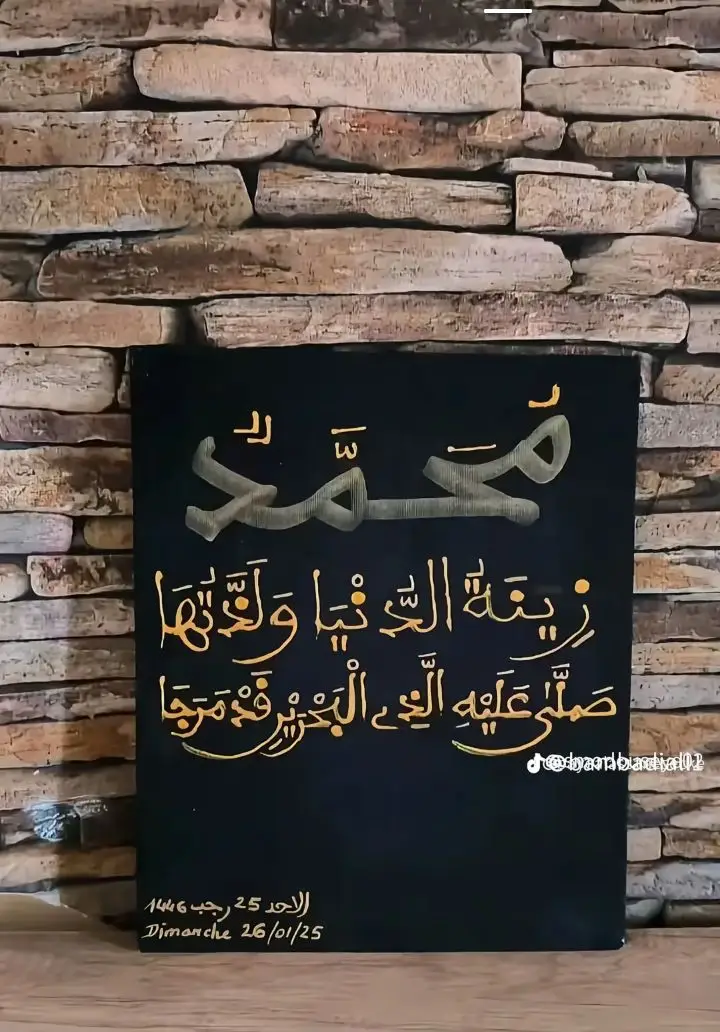 مُحَمَّدٌ
زِينَةُ الدُّنْيَا وَلَذَّتُهَا
صَلَّىٰ عَلَيْهِ الَّذِے الْبَحْرَيْنِ قَدْ مَرَجَا
الاحد 25 رجب 1446
Dimanche 26/01/25